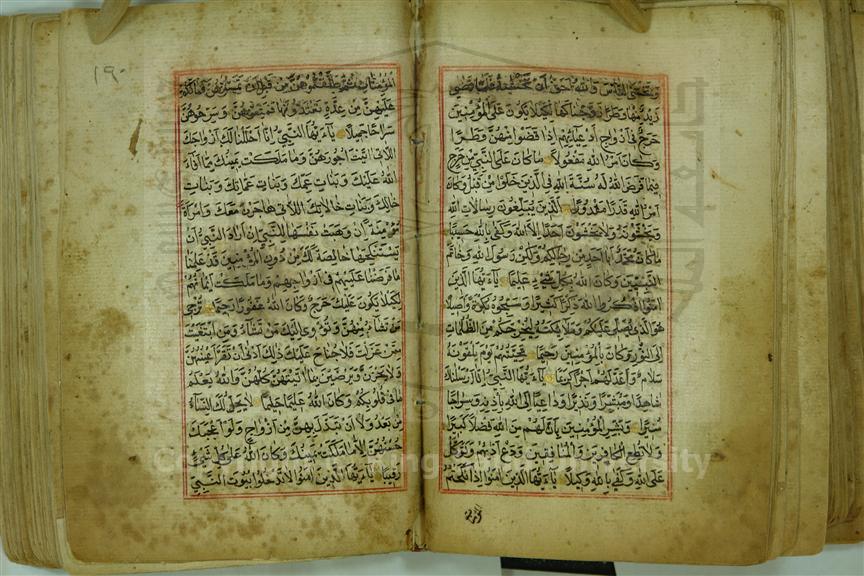 وتخشى الناس والله احق ان تخشيه فلما قضى
زيد منها وطرا زوجناكها لكيلا يكون على المؤمنين
حرج في ازواج ادعيائهم اذا قضوا منهن وطرا
وكان امر الله مفعولا ما كان على النبي من حرج
فيما فرض الله له سنة الله في الذين خلوا من قبل وكان
امر الله قدرا مقدورا الذين يبلغون رسالات الله
ويخشونه ولا يخشون احدا الا الله وكفى بالله حسيبا
ما كان محمد ابا احد من رجالكم ولكن رسول الله وخاتم
النبيين وكان الله بكل شيء عليما يا ايها الذين
امنوا اذكروا الله ذكرا كثيرا وسبحوه بكرة واصيلا
هو الذي يصلي عليكم وملائكته ليخرجكم من الظلمات
الى النور وكان بالمؤمنين رحيما تحيتهم يوم يلقونه
سلام واعد لهم اجرا كريما يا ايها النبي انا ارسلناك
شاهدا ومبشرا ونذيرا وداعيا الى الله باذنه وسراجا
منيرا وبشر المؤمنين بان لهم من الله فضلا كبيرا
ولا تطع الكافرين والمنافقين ودع اذيهم وتوكل
على الله وكفى بالله وكيلا يا ايها الذين امنوا اذا نكحتم
١٩٠
المؤمنات ثم طلقتموهن من قبل ان تمسوهن فما لكم
عليهن من عدة تعتدونها فمتعوهن وسرحوهن
سراحا جميلا يا ايها النبي انا احللنا لك ازواجك
اللاتي اتيت اجورهن وما ملكت يمينك مما افاء
الله عليك وبنات عمك وبنات عماتك وبنات
خالك وبنات خالاتك اللاتي هاجرن معك وامراة
مؤمنة ان وهبت نفسها للنبي ان اراد النبي ان
يستنكحها خالصة لك من دون المؤمنين قد علمنا
ما فرضنا عليهم في ازواجهم وما ملكت ايمانهم
لكيلا يكون عليك حرج وكان الله غفورا رحيما ترجي
من تشاء منهن وتؤوي اليك من تشاء ومن ابتغيت
ممن عزلت فلا جناح عليك ذلك ادنى ان تقر اعينهن
ولا يحزن ويرضين بما اتيتهن كلهن والله يعلم
ما في قلوبكم وكان الله عليما حليما لا يحل لك النساء
من بعد ولا ان تبدل بهن من ازواج ولو اعجبك
حسنهن الا ما ملكت يمينك وكان الله على كل شيء
رقيبا يا ايها الذين امنوا لا تدخلوا بيوت النبي